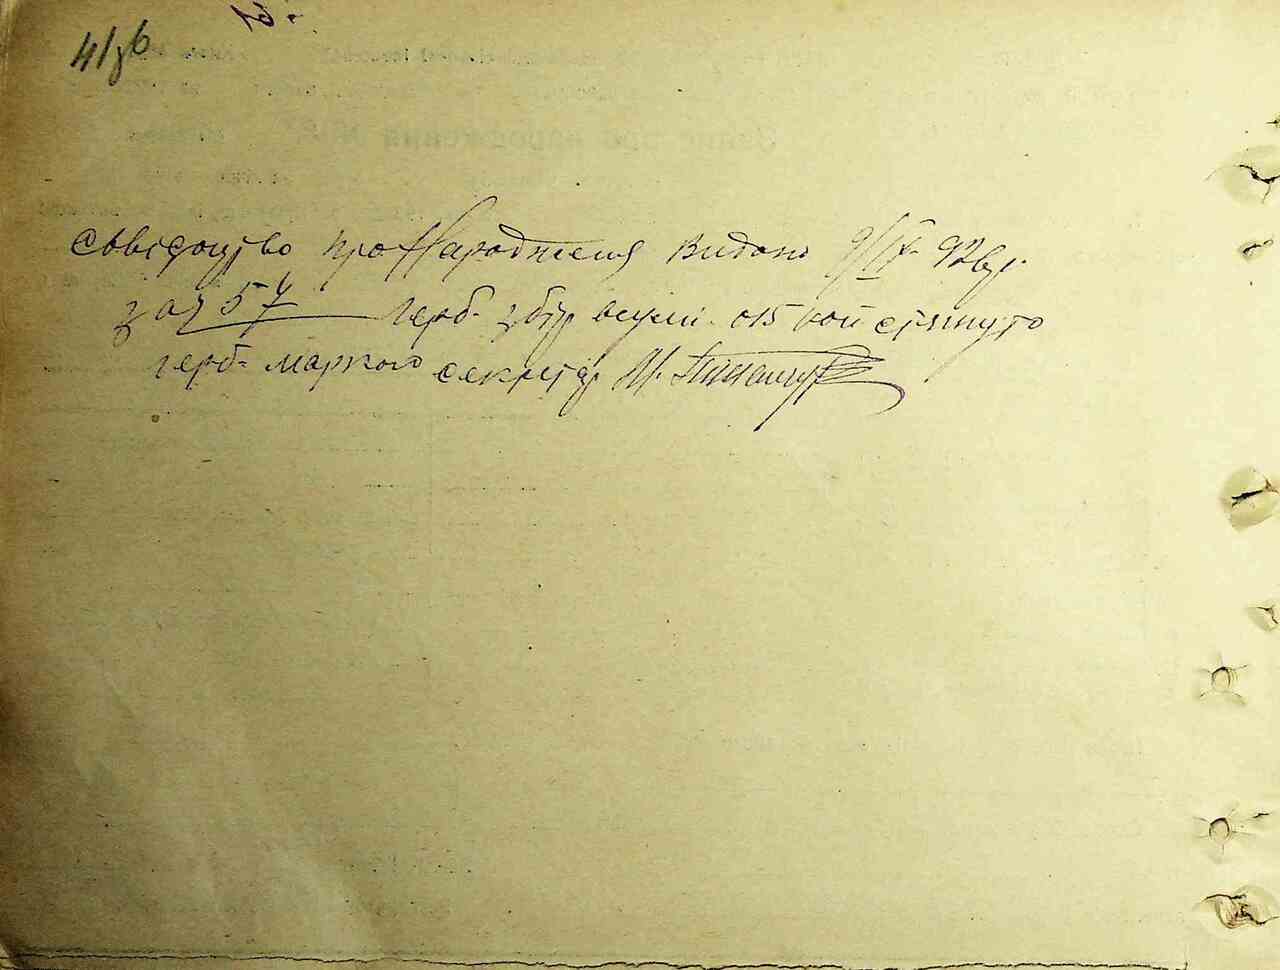 41/зв
свідоцтво про Народження видано 9/IX-
за № 57 герб. збір в сумі 0-15 коп стягнуто
герб. маркою секретар